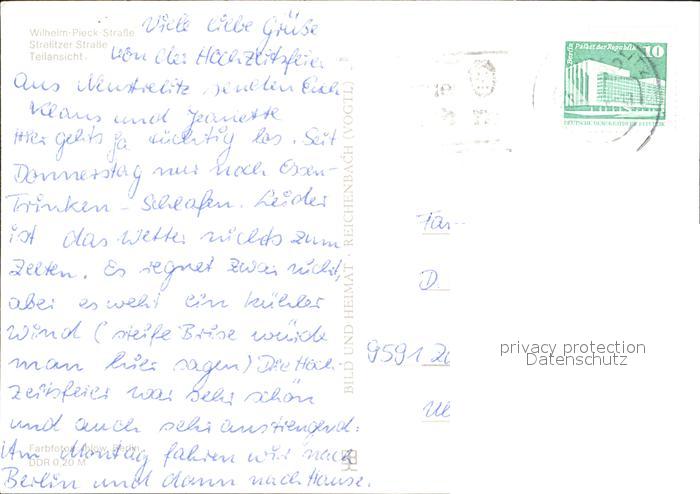 Wilhelm-Pieck-Straße
Strelitzer Straße
Teilansicht
Viele liebe Grüße
von der Hochzeitsfeier
aus Neustrelitz senden Euch
Klaus und Jeanette
Hier gehts ja richtig los. Seit
Donnerstag nur noch Essen-
Trinken - Schlafen. Leider
ist das Wetter nichts zum
Zelten. Es regnet zwar nicht,
aber es weht ein kühler
Wind (steife Brise würde
man hier sagen) Die Hoch-
zeitsfeier war sehr schön
und auch sehr anstrengend.
Am Montag fahren wir nach
Berlin und dann nach Hause.
Farbfoto: Berlin
DDR 0,20 M
BILD UND HEIMAT · REICHENBACH (VOGTL)
Berlin Palast der Republik
10
DEUTSCHE DEMOKRATISCHE REPUBLIK
Fam
D.
9591
privacy protection
Datenschutz